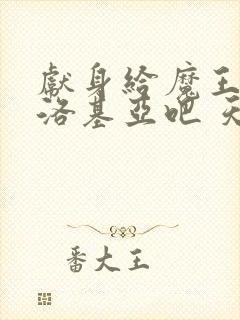 獻身給魔王
洛基亞吧 天
番大王